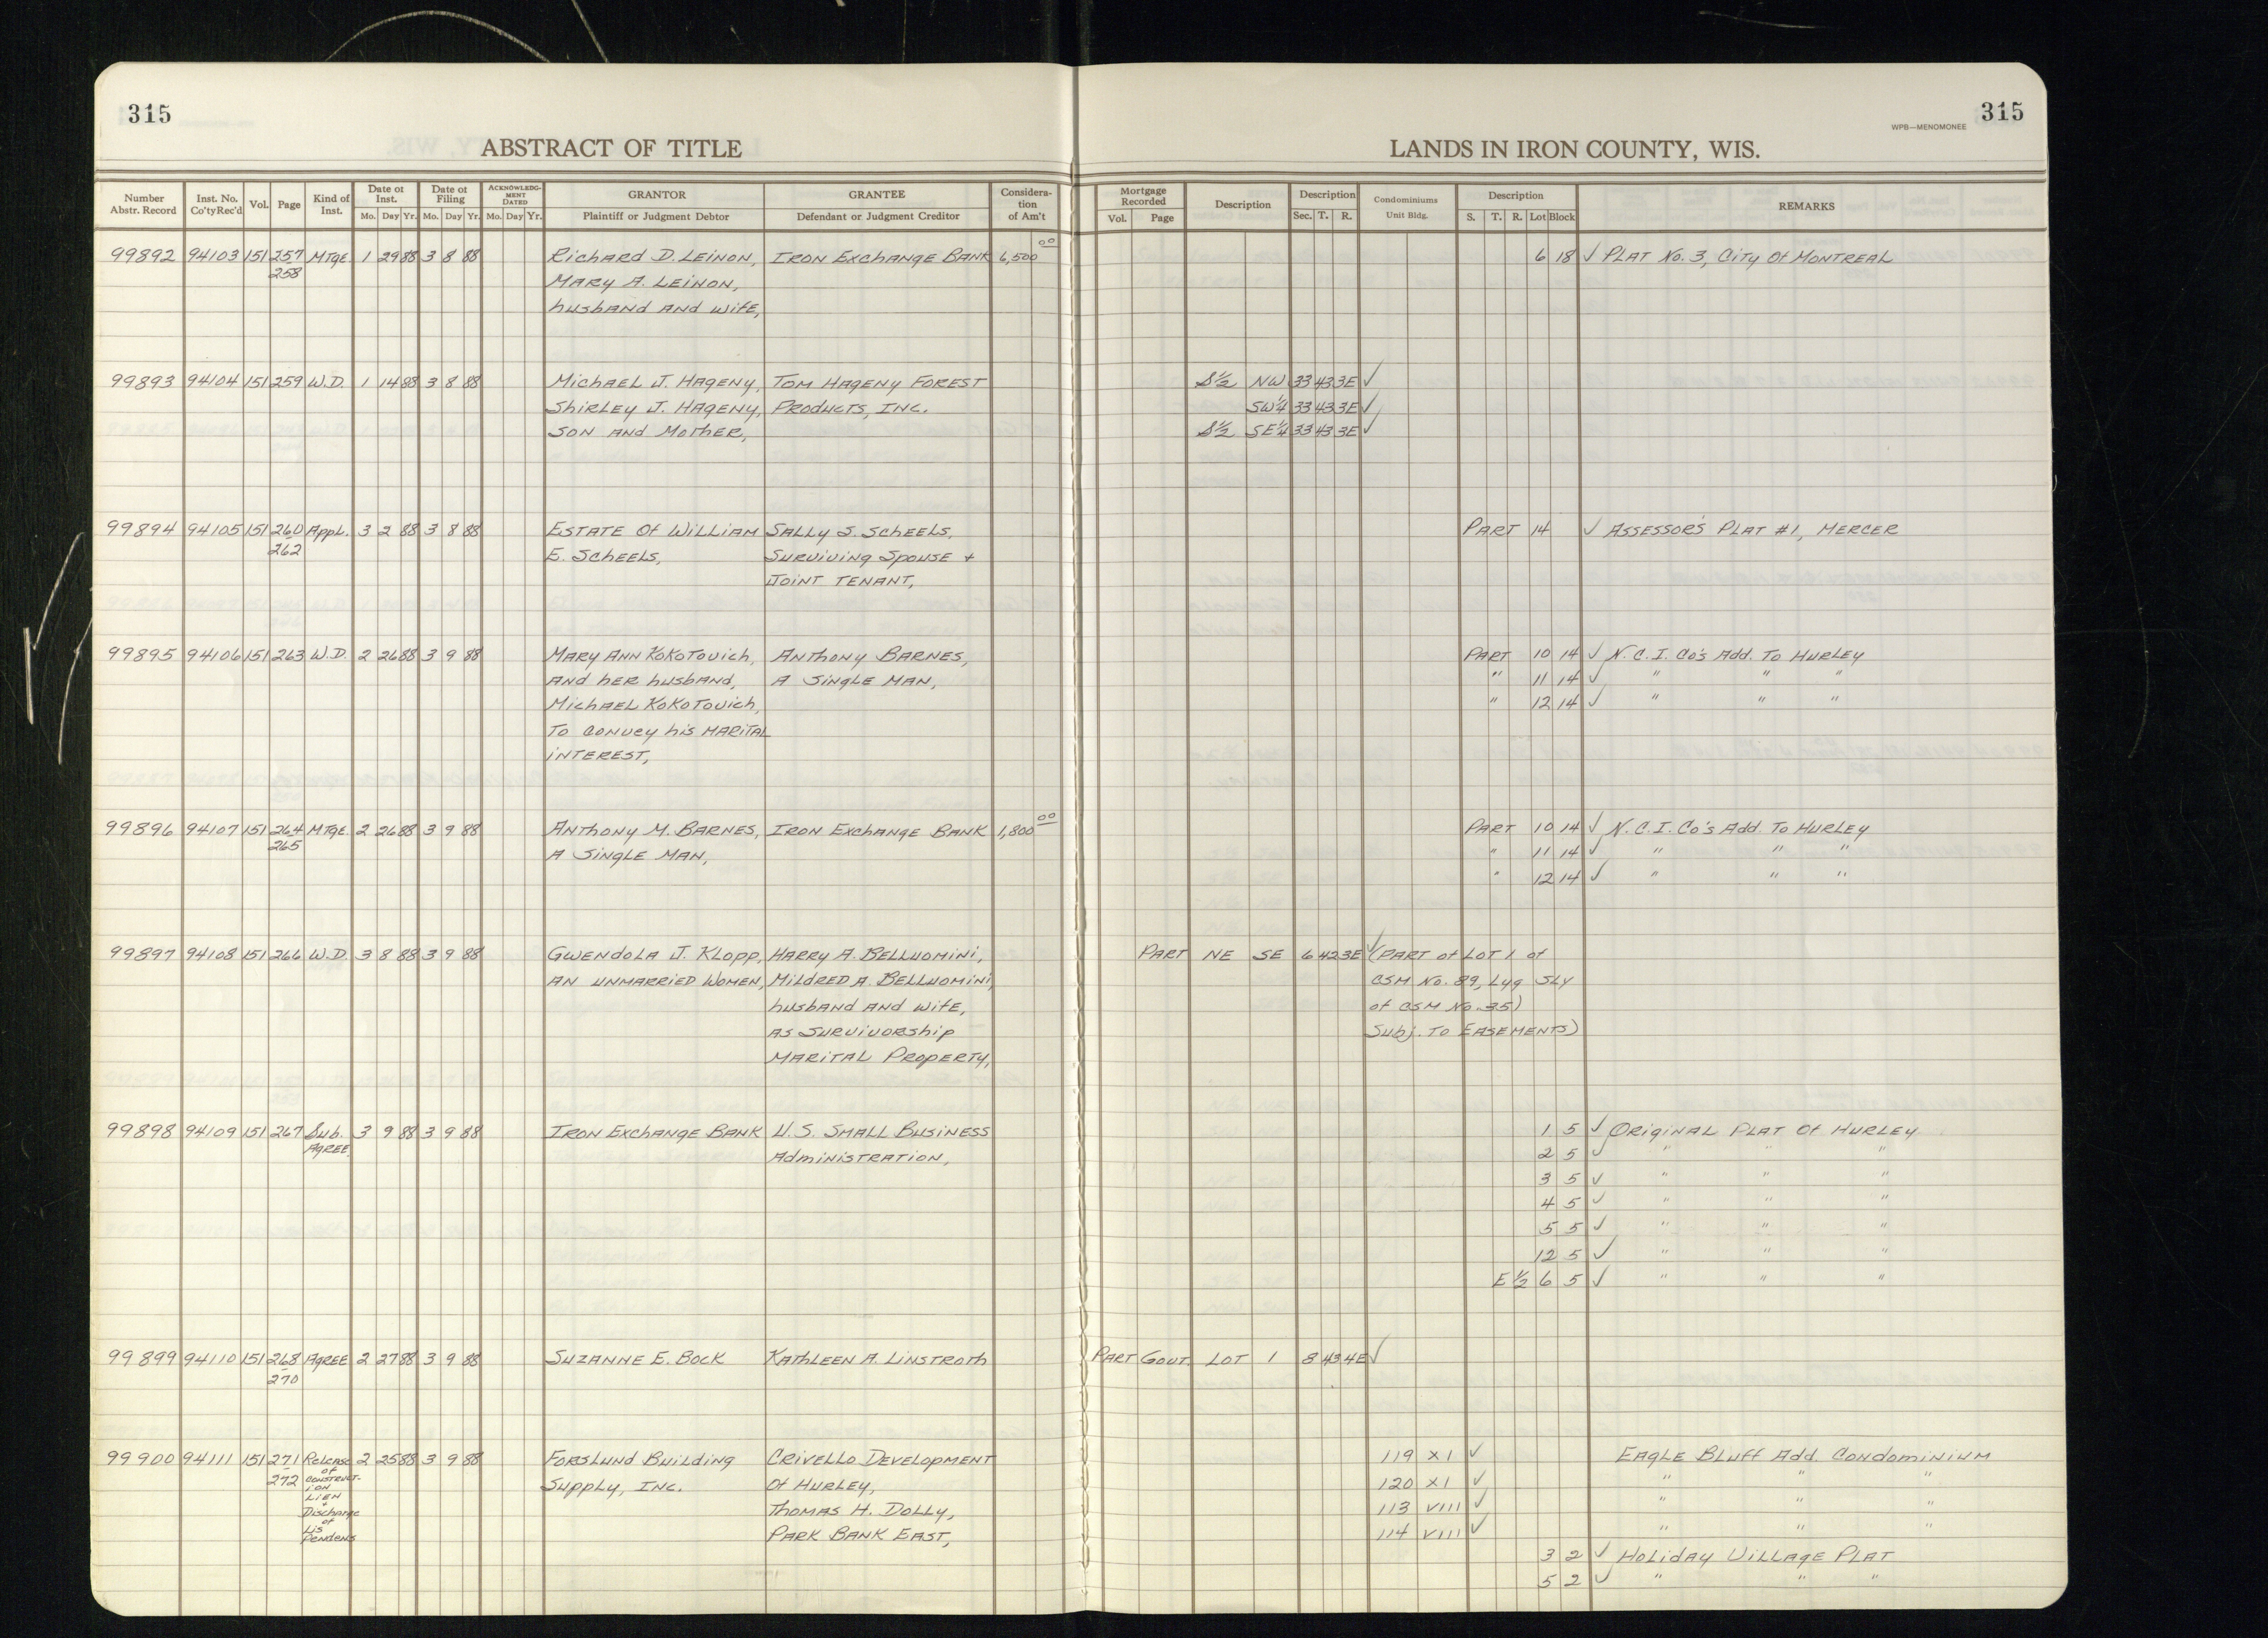 315
315
WPB—MENOMONEE
ABSTRACT OF TITLE
LANDS IN IRON COUNTY, WIS.
Number Abstr. Record
Inst. No. Co'ty Rec'd
Vol.
Page
Kind of Inst.
Date of Inst. Mo. Day Yr.
Date of Filing Mo. Day Yr.
ACKNOWLEDG-MENT DATED Mo. Day Yr.
GRANTOR Plaintiff or Judgment Debtor
GRANTEE Defendant or Judgment Creditor
Considera-tion of Am't
Mortgage Recorded Vol. Page
Description
Description Sec. T. R.
Condominiums Unit Bldg.
Description S. T. R. Lot Block
REMARKS
99892 94103 151 257 MTGE. 1 29 88 3 8 88 Richard D. Leinon, Iron Exchange Bank 6,500 00 6 18 ✓ Plat No. 3, City Of Montreal
258 Mary A. Leinon,
husband and wife,
99893 94104 151 259 W.D. 1 14 88 3 8 88 Michael J. Hageny, Tom Hageny Forest S½ NW 33 43 3E ✓
Shirley J. Hageny, Products, Inc. SW¼ 33 43 3E ✓
son and Mother, S½ SE¼ 33 43 3E ✓
99894 94105 151 260 Appl. 3 2 88 3 8 88 Estate Of William Sally S. Scheels, Part 14 ✓ Assessor's Plat #1, Mercer
262 E. Scheels, Surviving Spouse +
Joint Tenant,
99895 94106 151 263 W.D. 2 26 88 3 9 88 Mary Ann Kokotovich, Anthony Barnes, Part 10 14 ✓ N.C.I. Co's Add. To Hurley
and her husband, A Single Man, " 11 14 ✓ " " "
Michael Kokotovich, " 12 14 ✓ " " "
To convey his marital
interest,
99896 94107 151 264 MTGE. 2 26 88 3 9 88 Anthony M. Barnes, Iron Exchange Bank 1,800 00 Part 10 14 ✓ N.C.I. Co's Add. To Hurley
265 A Single Man, " 11 14 ✓ " " "
" 12 14 ✓ " " "
99897 94108 151 266 W.D. 3 8 88 3 9 88 Gwendola J. Klopp, Harry A. Belluomini, Part NE SE 6 42 3E ✓ (Part of Lot 1 of
an unmarried women, Mildred A. Belluomini, CSM No. 89, Lyg Sly
husband and wife, of CSM No. 35)
as survivorship Subj. To Easements)
marital property,
99898 94109 151 267 Sub. 3 9 88 3 9 88 Iron Exchange Bank U.S. Small Business 1 5 ✓ Original Plat Of Hurley
Agree. Administration, 2 5 ✓ " " "
3 5 ✓ " " "
4 5 ✓ " " "
5 5 ✓ " " "
12 5 ✓ " " "
E ½ 6 5 ✓ " " "
99899 94110 151 268 Agree 2 27 88 3 9 88 Suzanne E. Bock Kathleen A. Linstroth Part Govt. Lot 1 8 43 4E ✓
270
99900 94111 151 271 Release 2 25 88 3 9 88 Forslund Building Crivello Development 119 XI ✓ Eagle Bluff Add. Condominium
272 of Construct-ion Lien + Discharge of Lis Pendens Supply, Inc. Of Hurley, 120 XI ✓ " " "
Thomas H. Dolly, 113 VIII ✓ " " "
Park Bank East, 114 VIII ✓ " " "
3 2 ✓ Holiday Village Plat
5 2 ✓ " " "